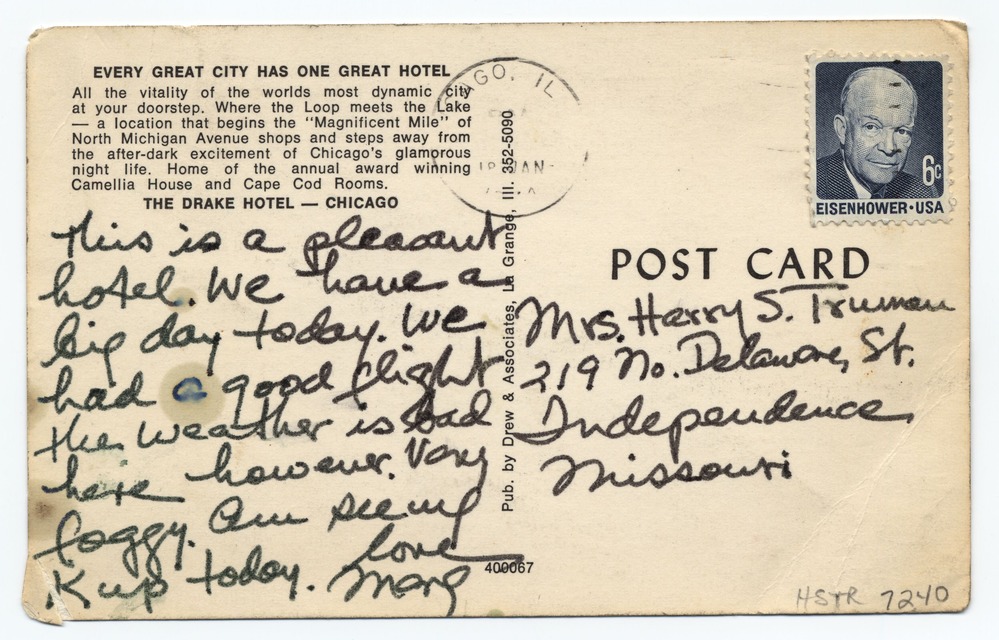 EVERY GREAT CITY HAS ONE GREAT HOTEL
All the vitality of the worlds most dynamic city
at your doorstep. Where the Loop meets the Lake
— a location that begins the "Magnificent Mile" of
North Michigan Avenue shops and steps away from
the after-dark excitement of Chicago's glamorous
night life. Home of the annual award winning
Camellia House and Cape Cod Rooms.
THE DRAKE HOTEL — CHICAGO
This is a pleasant
hotel. We have a
big day today. We
had a good flight
the weather is bad
here however. Very
foggy. Am seeing
Kup today. Love
Marg
Pub. by Drew & Associates, La Grange, Ill. 352-5090
400067
AGO, IL
JAN
EISENHOWER·USA
6c
POST CARD
Mrs. Harry S. Truman
219 No. Delaware, St.
Independence
Missouri
HSTR 7240